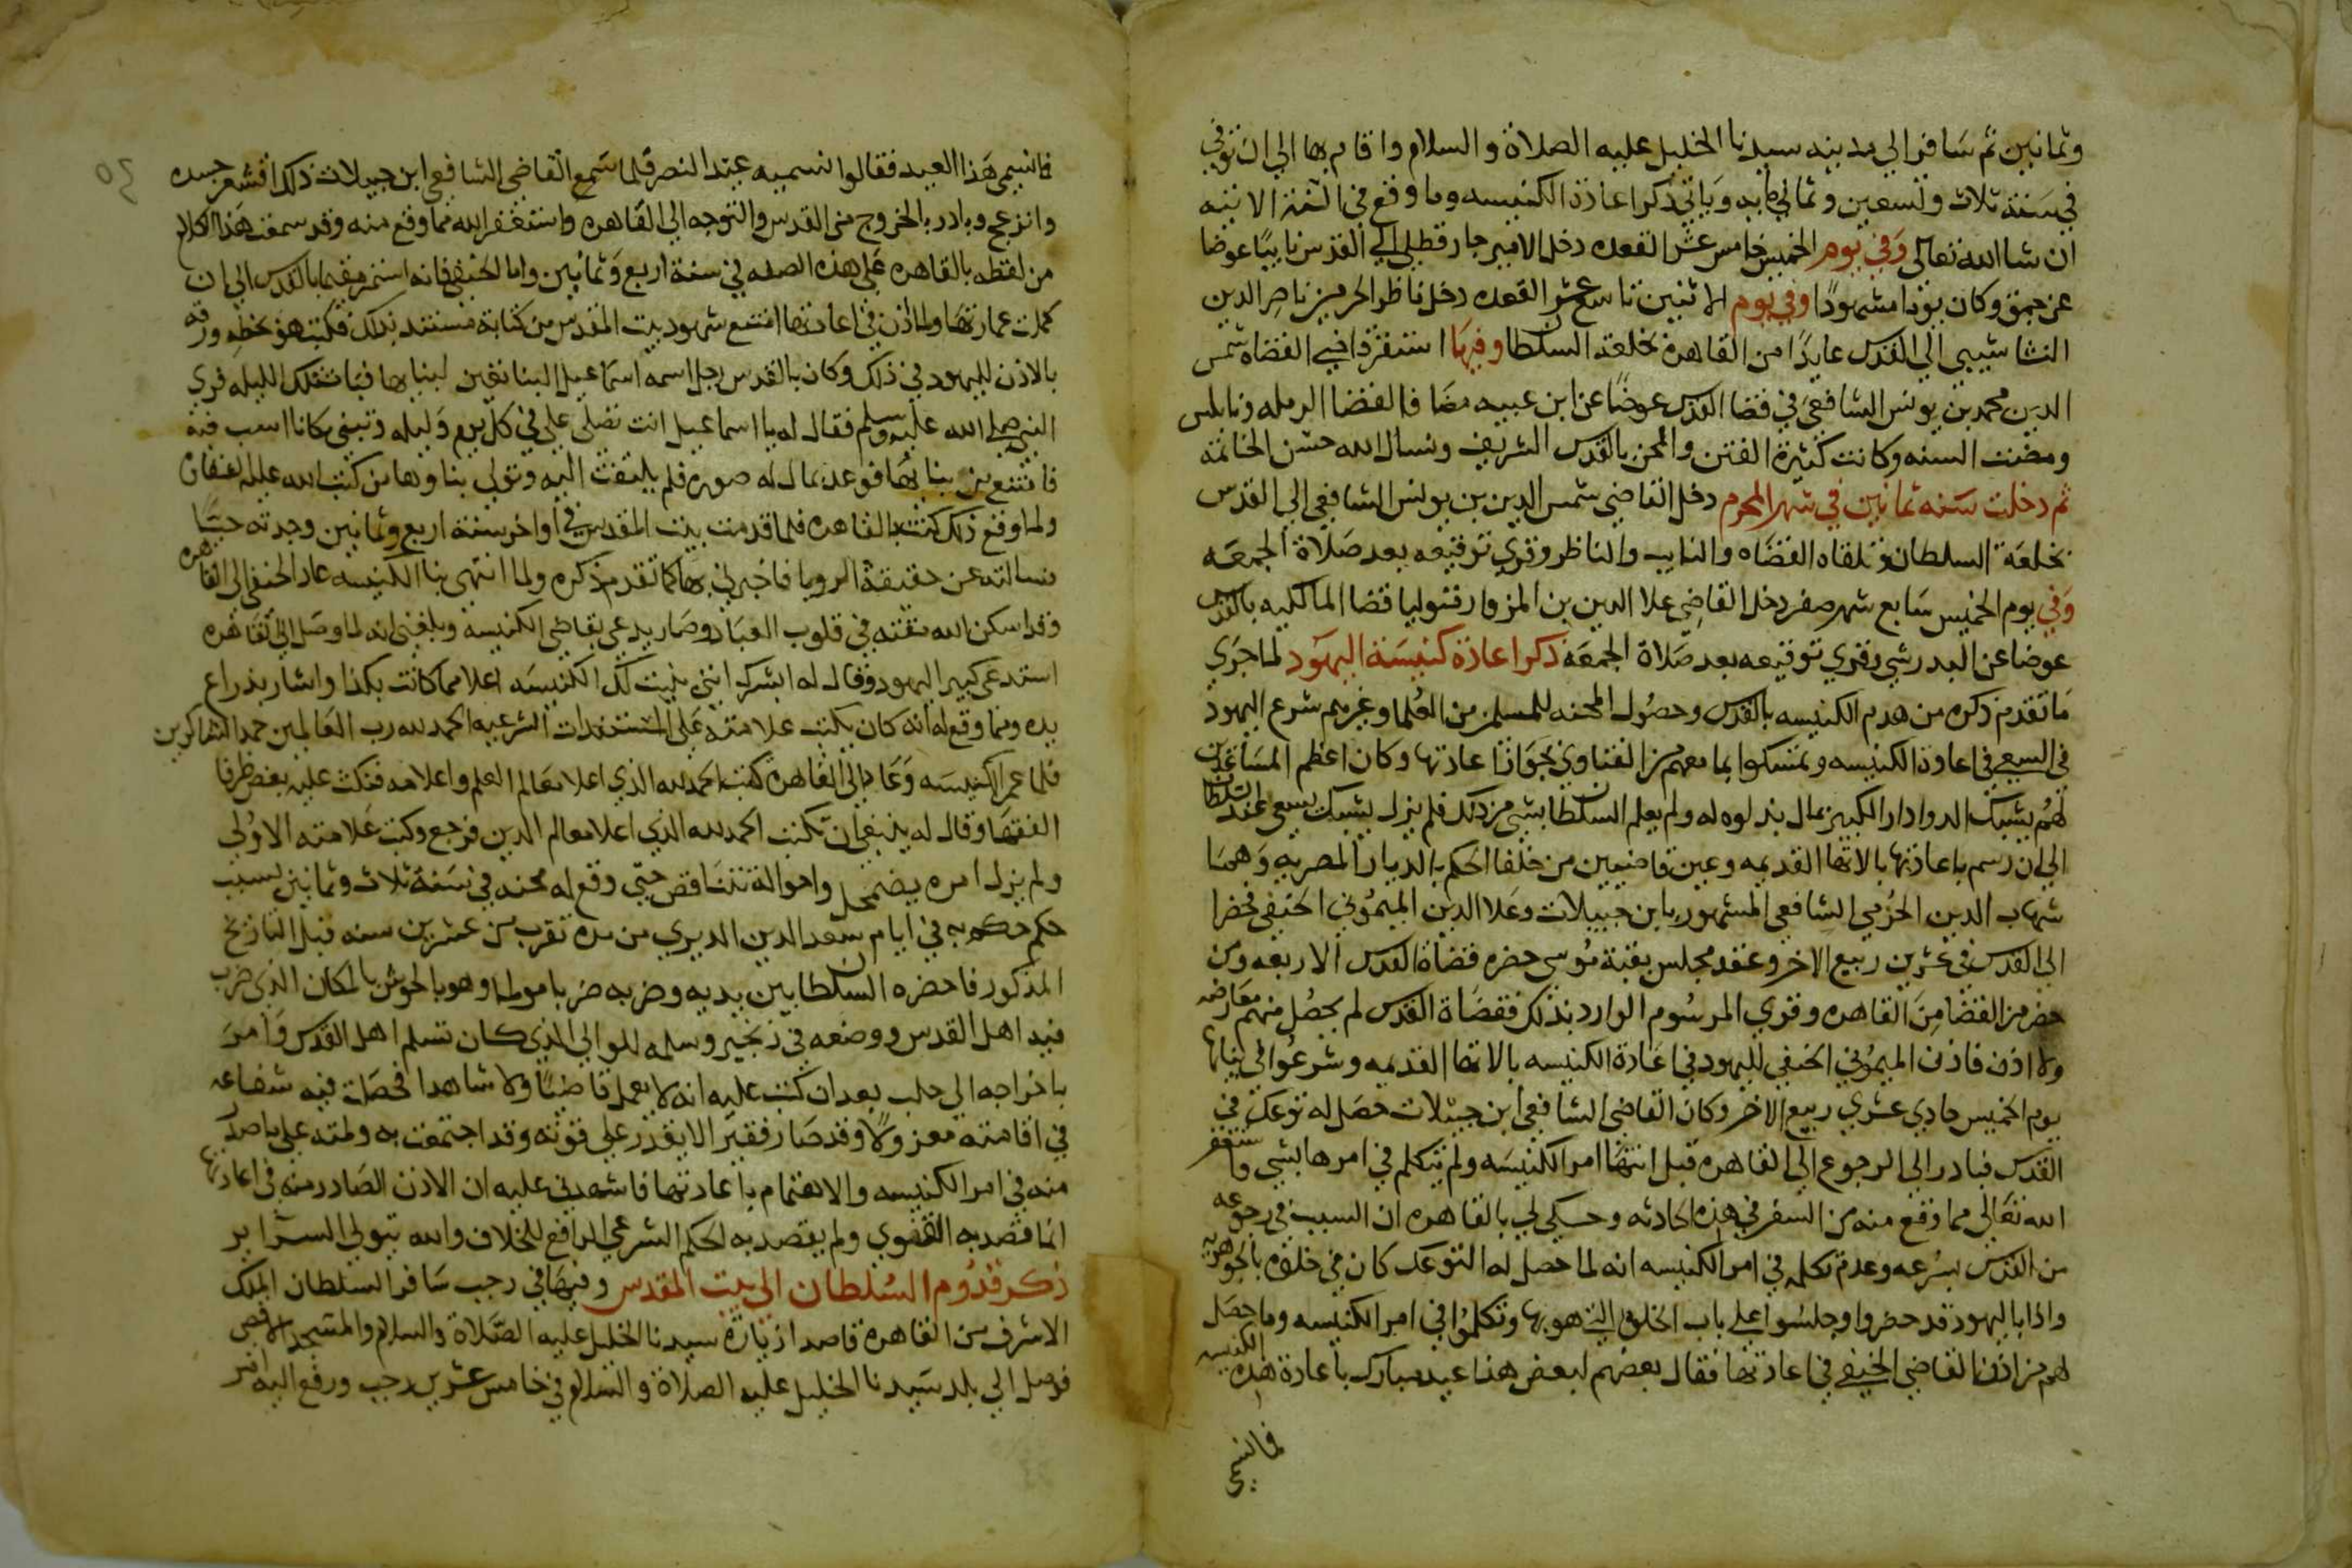 وثمانين ثم سافر الي مدينه سيدنا الخليل عليه الصلاة والسلام واقام بها الي ان توفي
في سنة ثلاث وتسعين وثماني مايه وياتي ذكر اعادة الكنيسه وما وقع في السنة الاتيه
ان شا الله تعالى وفي يوم الخميس خامس عشر القعده دخل الامير جارقطلي الي القدس نايبًا عوضا
عن جقمق وكان يومًا مشهودًا وفي يوم الاثنين تاسع عشر القعده دخل ناظر الحرمين ناصر الدين
النشاشيبي الي القدس عايدًا من القاهرة بخلعة السلطان وفيها استقر قاضي القضاه شمس
الدين محمد بن يونس الشافعي في قضا القدس عوضًا عن ابن عبيه مضافا لقضا الرمله ونابلس
ومضت السنه وكانت كثيرة الفتن والمحن بالقدس الشريف ونسال الله حسن الخاتمه
ثم دخلت سنه ثمانين في شهر المحرم دخل القاضي شمس الدين بن يونس الشافعي الي القدس
بخلعة السلطان وتلقاه القضاه والنايب والناظر وقري توقيعه بعد صلاة الجمعه
وفي يوم الخميس سابع شهر صفر دخل القاضي علا الدين بن المزوار متوليا قضا المالكيه بالقدس
عوضا عن البدرشي وقري توقيعه بعد صلاة الجمعه ذكر اعادة كنيسة اليهود لما جري
ما تقدم ذكره من هدم الكنيسه بالقدس وحصول المحنه للمسلمين من العلما وغيرهم شرع اليهود
في السعي في اعادة الكنيسه وتمسكوا بما معهم من الفتاوي بجواز اعادتها وكان اعظم المساعدين
لهم يشبك الدوادار الكبير بمال بذلوه له ولم يعلم السلطان بشي من ذلك فلم يزل يشبك يسعى عند السلطان
الي ان رسم باعادتها بالاتها القديمه وعين قاضيين من خلفا الحكم بالديار المصريه وهما
شهاب الدين الحزمي الشافعي المشهور بابن جبيلات وعلا الدين الميموني الحنفي فحضرا
الي القدس في عشرين ربيع الاخر وعقد مجلس بقبة موسى حضره قضاة القدس الاربعه ومن
حضر من القضا من القاهره وقري المرسوم الوارد بذلك فقضاة القدس لم يحصل منهم معارضه
ولا اذن فاذن الميموني الحنفي لليهود في اعادة الكنيسه بالاتها القديمه وشرعوا في بنايها
يوم الخميس حادي عشري ربيع الاخر وكان القاضي الشافعي ابن جبيلات حصل له توعك في
القدس فبادر الي الرجوع الي القاهره قبل انتها امر الكنيسه ولم يتكلم في امرها بشي واستغفر
الله تعالي مما وقع منه من السفر في هذه الحادثه وحكي لي بالقاهره ان السبب في رجوعه
من القدس بسرعه وعدم تكلمه في امر الكنيسه انه لما حصل له التوعك كان في خلوه بالجوهريه
واذا باليهود قد حضروا وجلسوا علي باب الخلوة التي هو بها وتكلموا في امر الكنيسه وما حصل
لهم من اذن القاضي الحنفي في اعادتها فقال بعضهم لبعض هذا عيد مبارك باعادة هذه الكنيسه
فانسمي
فانسمي هذا العيد فقالوا نسميه عيد النصر فلما سمع القاضي الشافعي ابن جبيلات ذلك اقشعر جسده
وانزعج وبادر بالخروج من القدس والتوجه الي القاهره واستغفر الله مما وقع منه وقد سمعت هذا الكلام
من لفظه بالقاهره علي هذه الصفه في سنة اربع وثمانين واما الحنفي فانه استمر مقيما بالقدس الي ان
كملت عمارتها ولما اذن في اعادتها امتنع شهود بيت المقدس من كتابة مستند بذلك فكتب هو بخطه ورقه
بالاذن لليهود في ذلك وكان بالقدس رجل اسمه اسماعيل البنا تعين لبنايها فبات تلك الليله فري
النبي صلى الله عليه وسلم فقال له يا اسماعيل انت تصلي علي في كل يوم وليله وتبني مكانا اسب فيه
فامتنع من بنايها فوعد بمال له صوره فلم يلتفت اليه وتولي بناوها من كتب الله عليه الشقا
ولما وقع ذلك كنت بالقاهره فلما قدمت بيت المقدس في اواخر سنة اربع وثمانين وجدته حيًا
فسالته عن حقيقة الرويا فاخبرني بها كما تقدم ذكره ولما انتهى بنا الكنيسه عاد الحنفي الي القاهره
وقد اسكن الله مقته في قلوب العباد وصار يدعي بقاضي الكنيسه وبلغني انه لما وصل الي القاهره
استدعى كبير اليهود وقال له ابشرك انني بنيت لك الكنيسه اعلا مما كانت بكذا واشار بذراع
يده ومما وقع له انه كان يكتب علامته على المستندات الشرعيه الحمد لله رب العالمين حمد الشاكرين
فلما عمر الكنيسه وعاد الي القاهرة كتب الحمد لله الذي اعلا معالم العلم واعلامه فنكت عليه بعض ظرفا
الفقها وقال له ينبغي ان تكتب الحمد لله الذي اعلا معالم الدين فرجع وكتب علامته الاولي
ولم يزل امره يضمحل واحواله تتناقص حتي وقع له محنه في سنة ثلاث وثمانين بسبب
حكم حكم به في ايام سعد الدين الديري من مده تقرب من عشرين سنه قبل التاريخ
المذكور فاحضره السلطان بين يديه وضربه ضربا مولما وهو بالحوش بالمكان الذي ضرب
فيه اهل القدس ووضعه في زنجير وسلمه للوالي الذي كان تسلم اهل القدس وامر
باخراجه الي حلب بعد ان كتب عليه انه لا يعمل قاضيًا ولا شاهدا فحصلت فيه شفاعه
في اقامته معزولًا وقد صار فقيرًا لا يقدر علي قوته وقد اجتمعت به ولمته علي ما صدر
منه في امر الكنيسه والاهتمام باعادتها فاشهدني عليه ان الاذن الصادر منه في اعادتها
انما قصد به الفتوي ولم يقصد به الحكم الشرعي الرافع للخلاف والله يتولي السراير
ذكر قدوم السلطان الي بيت المقدس وفيها في رجب سافر السلطان الملك
الاشرف من القاهرة قاصدا زيارة سيدنا الخليل عليه الصلاة والسلام والمسجد الاقصي
فوصل الي بلد سيدنا الخليل عليه الصلاة والسلام في خامس عشرين رجب ورفع اليه امر